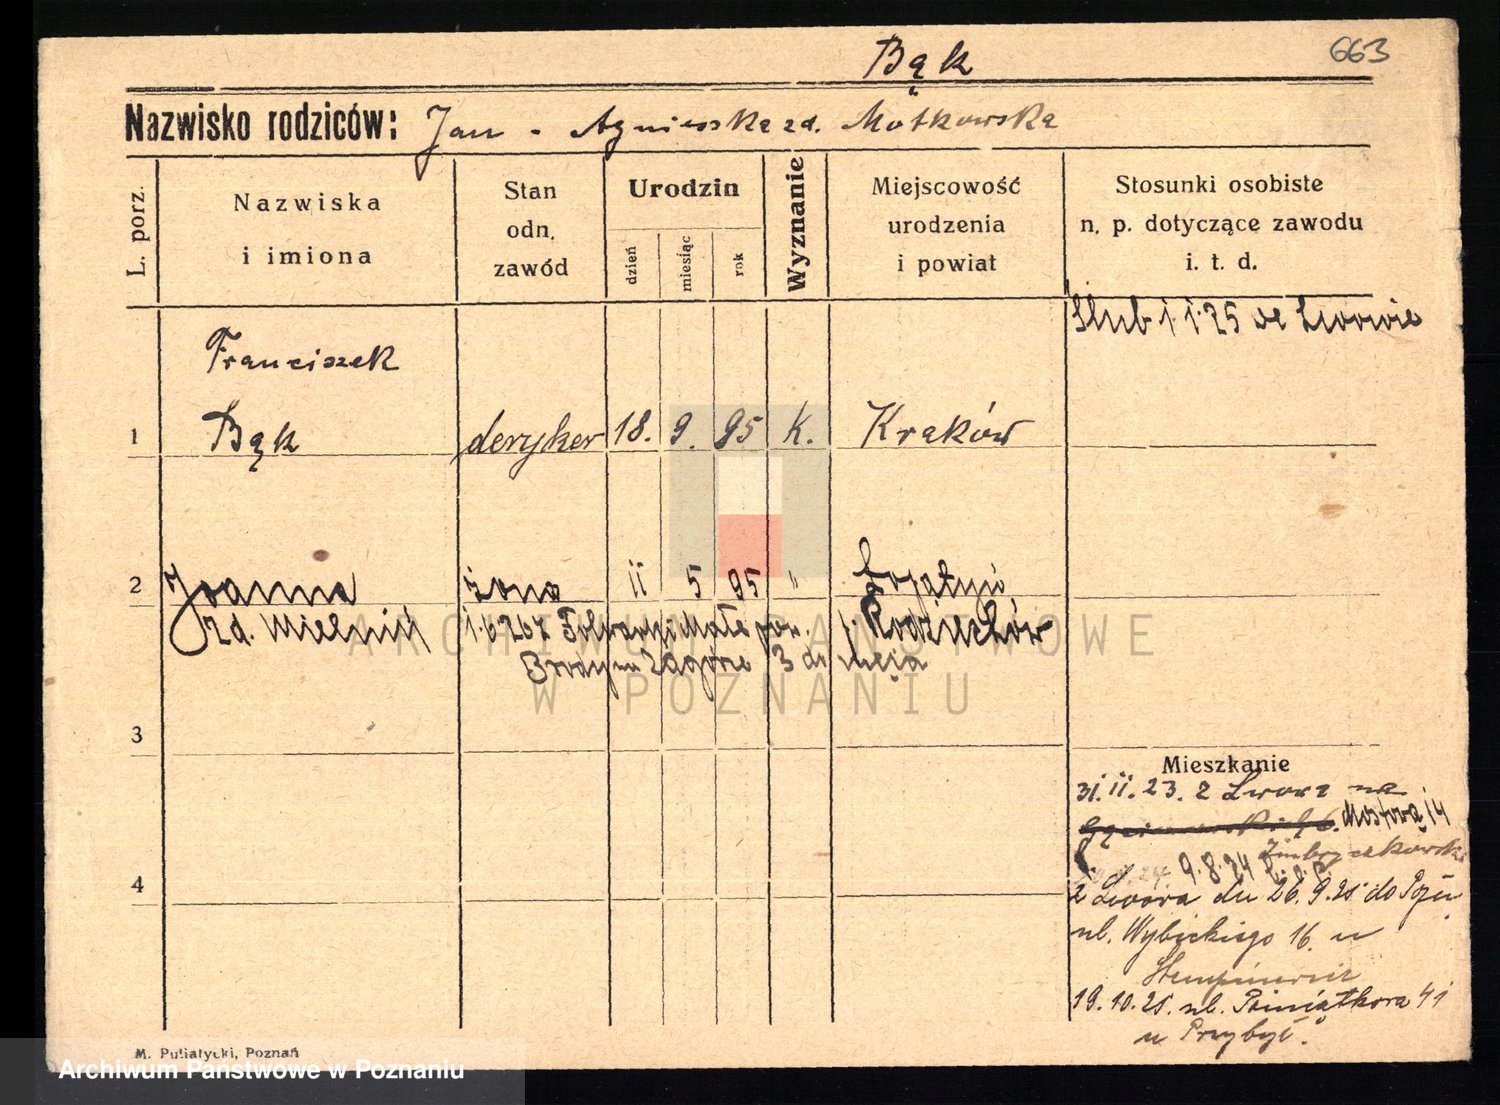 Bąk
663
Nazwisko rodziców: Jan - Agnieszka zd. Motkowska
L. porz.
Nazwiska i imiona
Stan odn. zawód
Urodzin
dzień
miesiąc
rok
Wyznanie
Miejscowość urodzenia i powiat
Stosunki osobiste n. p. dotyczące zawodu i. t. d.
Ślub 1.1.25 we Lwowie
Franciszek
1 Bąk deryker 18. 9. 95 K. Kraków
2 Joanna żona 11 5 95 "
zd. Mielniń
3 do
3
Mieszkanie
31.11.23. z Lwowa na
Mostowa 14
4
9.8.24
z Lwowa dn 26.9.25 do Pozn.
ul. Wybickiego 16. u
19.10.25. ul. Poniatkowa 41
u Przybył.
M. Putiatycki, Poznań
ARCHIWUM PAŃSTWOWE
W POZNANIU
Archiwum Państwowe w Poznaniu